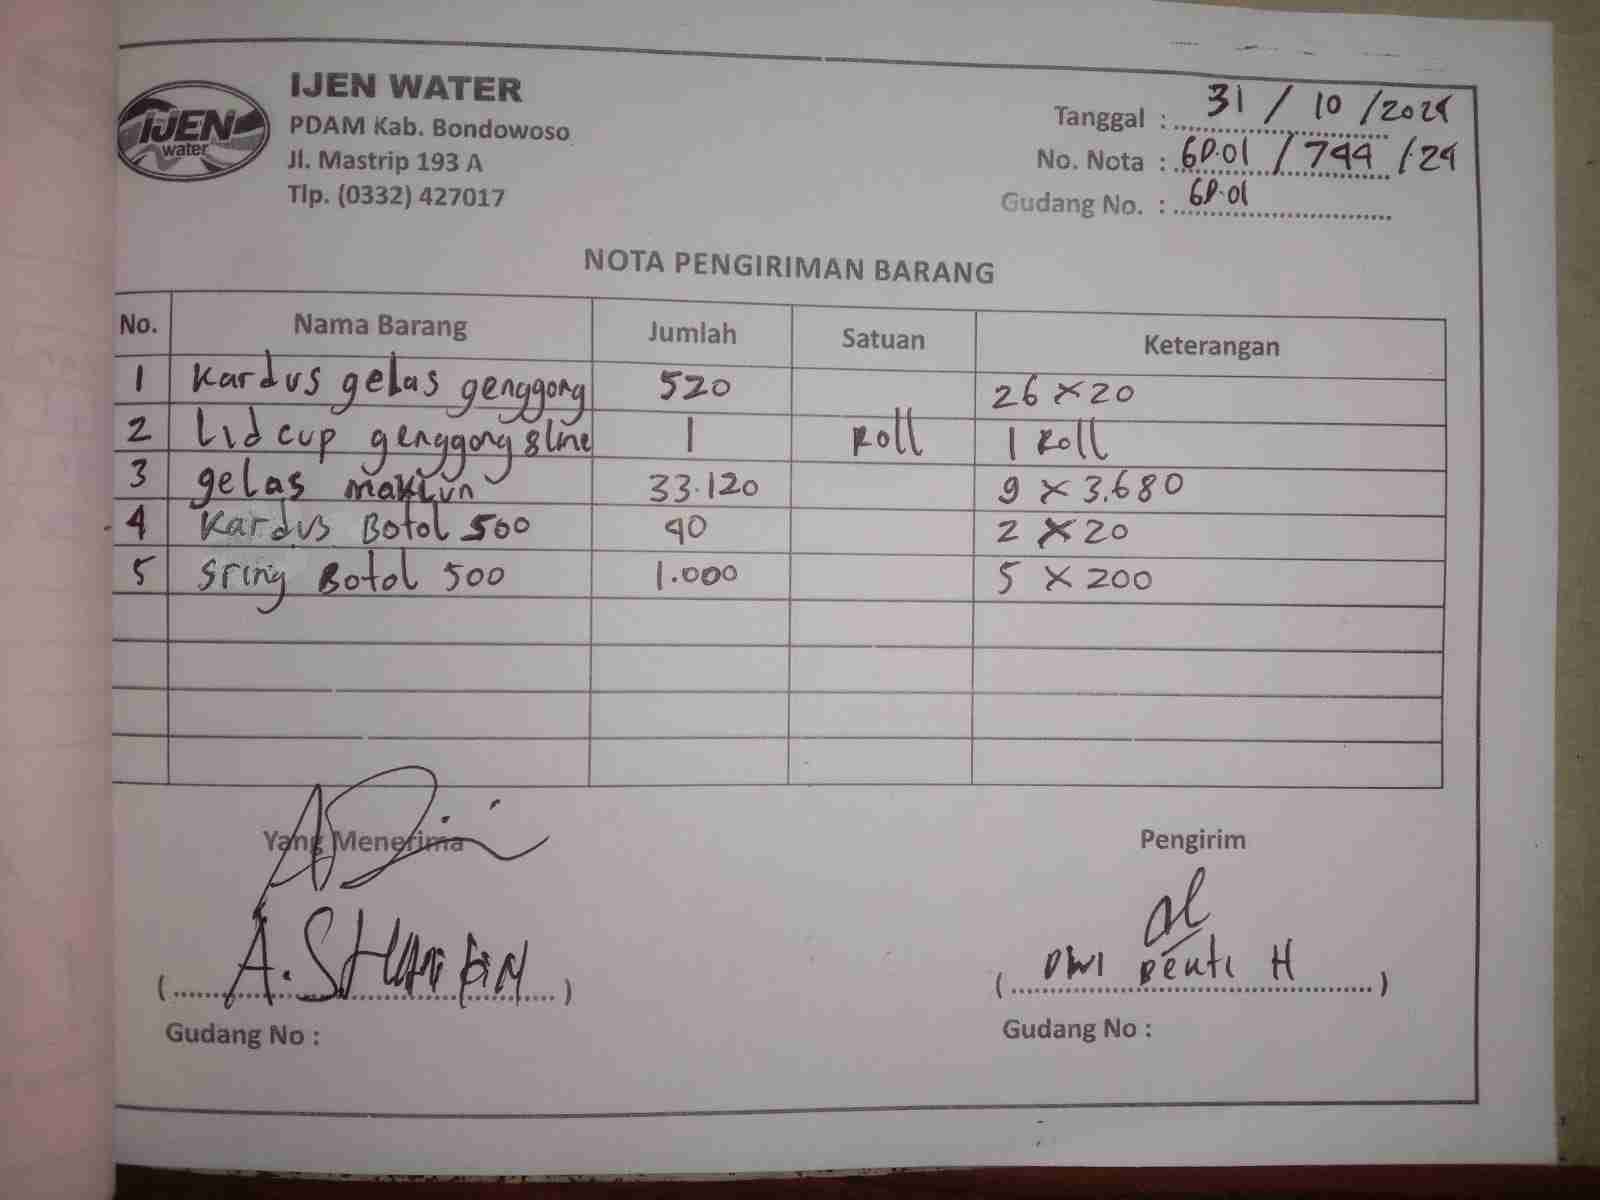 IJEN
water
IJEN WATER
PDAM Kab. Bondowoso
Jl. Mastrip 193 A
Tlp. (0332) 427017
Tanggal : 31 / 10 / 2024
No. Nota : GD.01 / 744 / .24
Gudang No. : GD.01
NOTA PENGIRIMAN BARANG
No. Nama Barang Jumlah Satuan Keterangan
1 Kardus gelas genggong 520 26 x 20
2 Lid cup genggong 8 line 1 Roll 1 Roll
3 gelas maklun 33.120 9 x 3.680
4 Kardus Botol 500 40 2 x 20
5 Sring Botol 500 1.000 5 x 200
Yang Menerima Pengirim
(A. ) (Dwi H)
Gudang No : Gudang No :